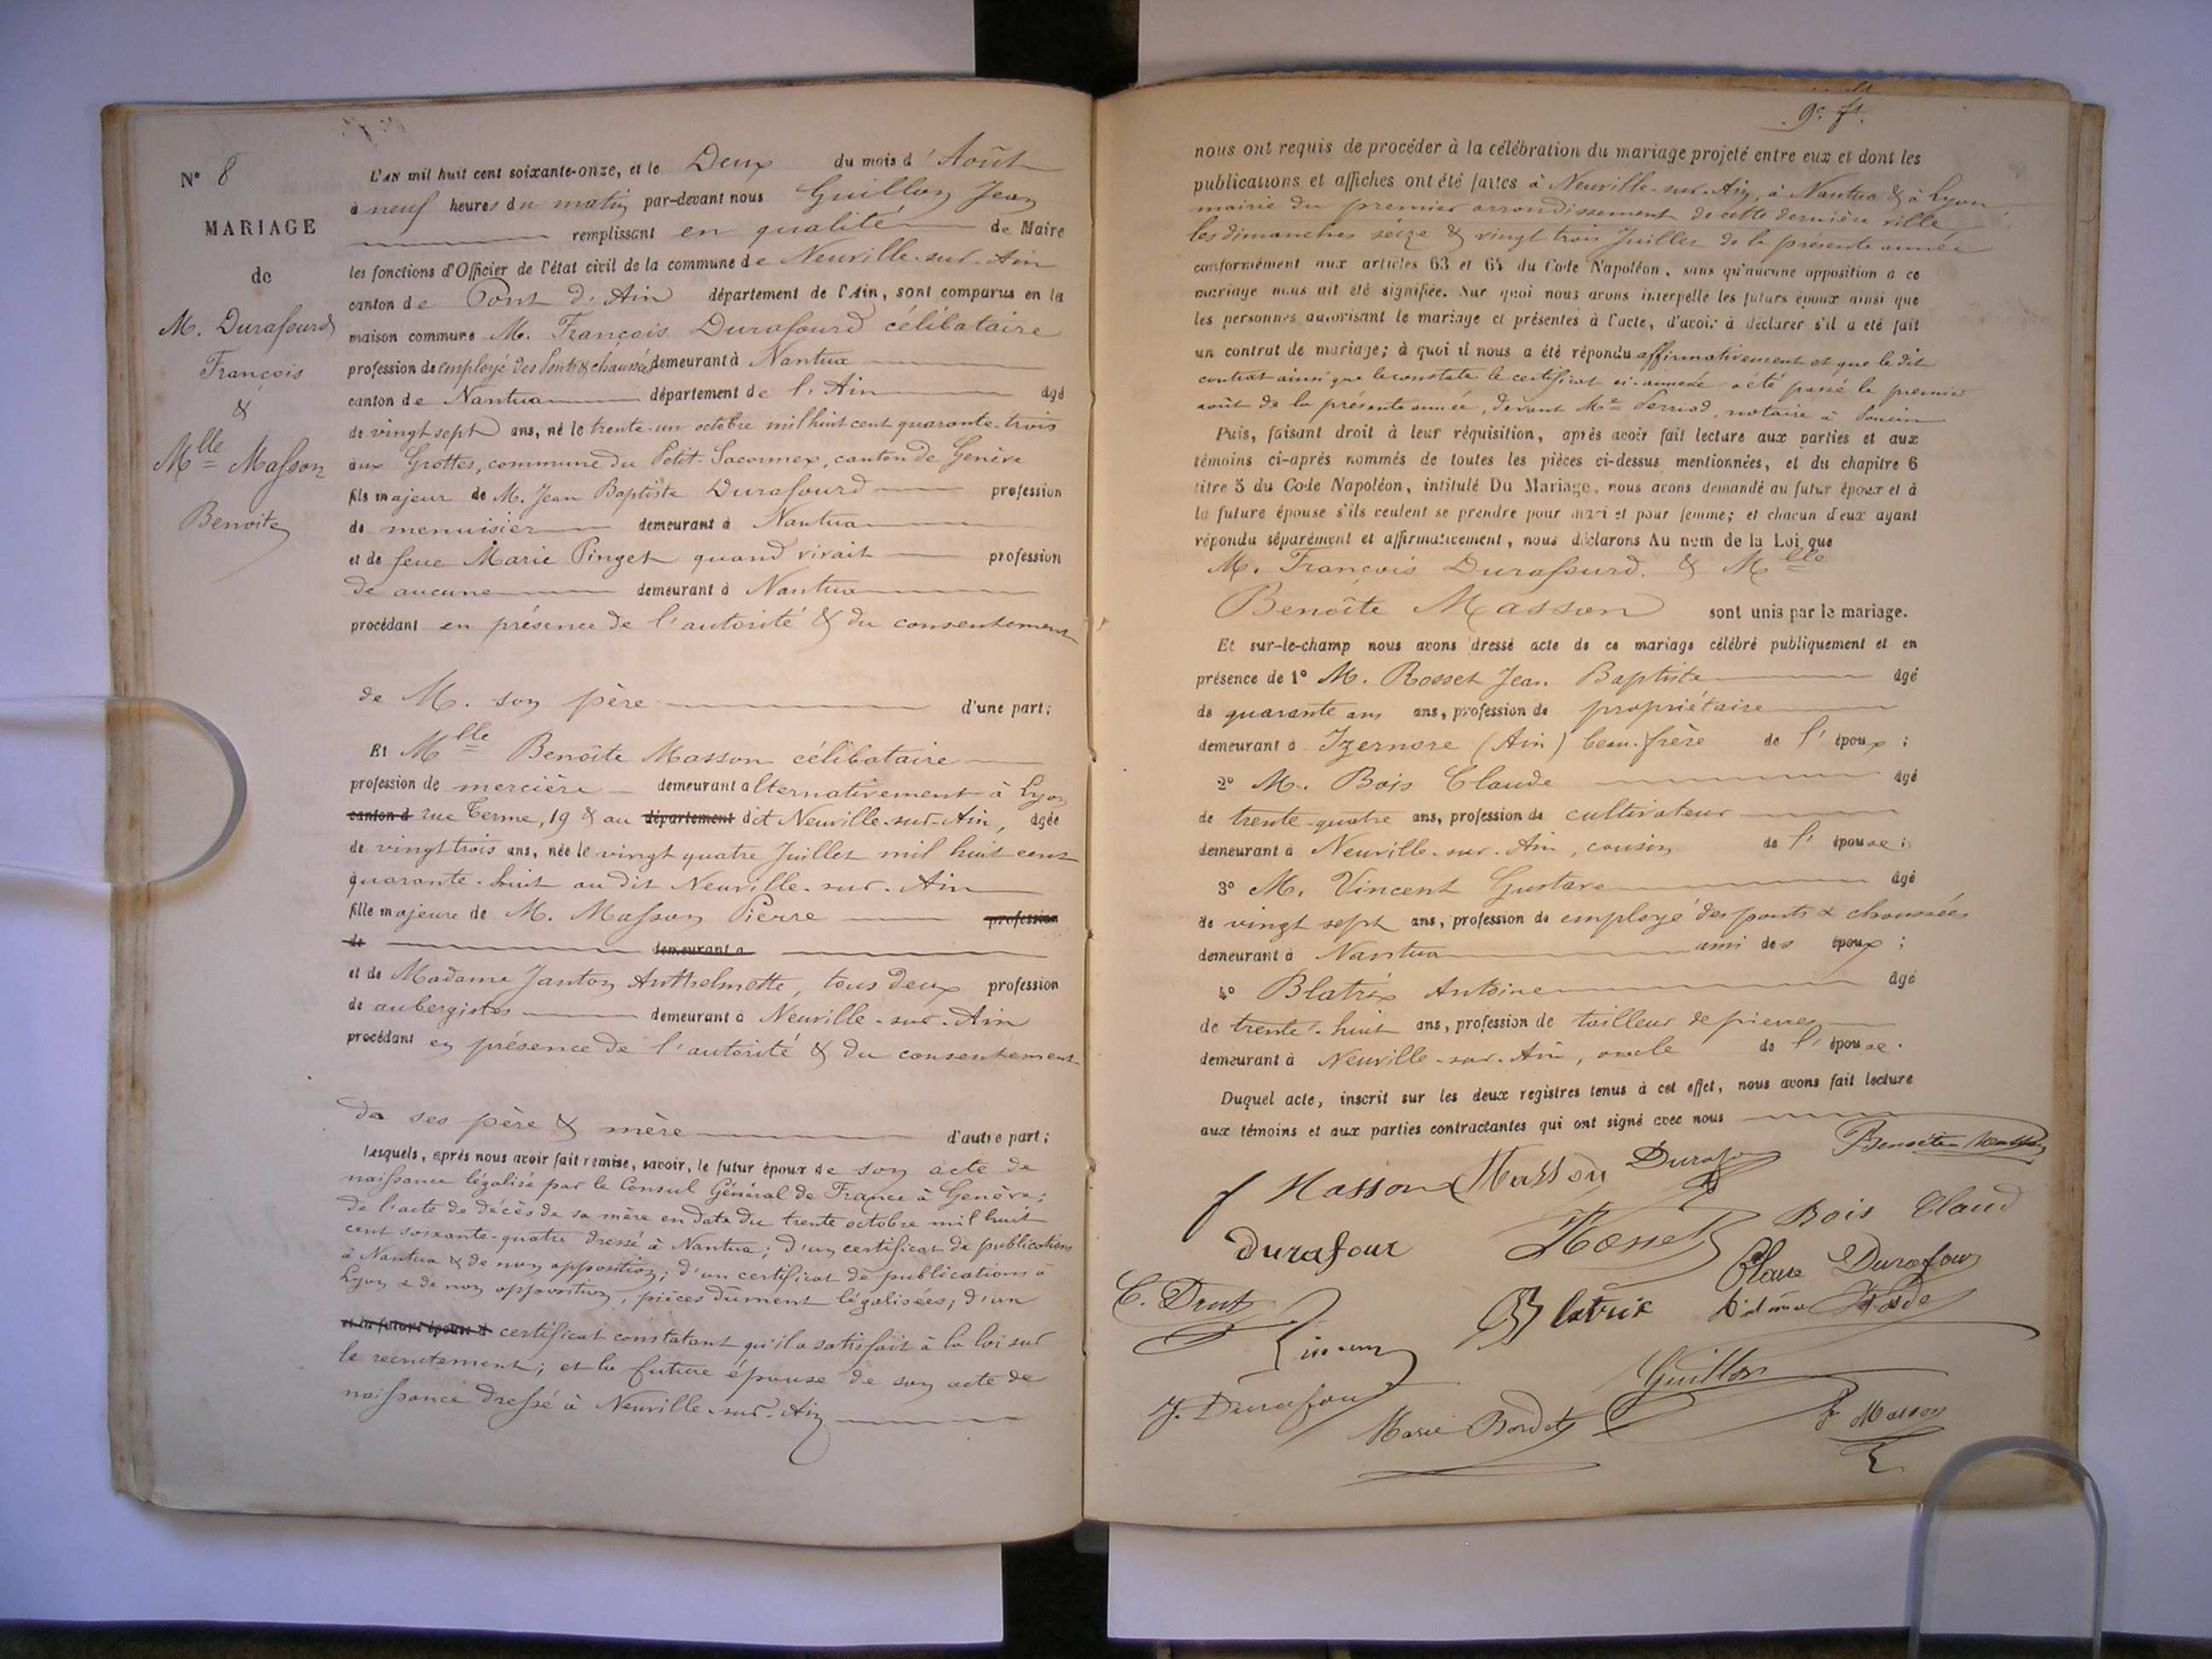 N° 8
MARIAGE
de
M. Durafourd
François
&
Mlle Masson
Benoite
L'AN mil huit cent soixante-onze, et le Deux du mois d'Août
à neuf heures du matin par-devant nous Guillon Jean
remplissant en qualité de Maire
les fonctions d'Officier de l'état civil de la commune de Neuville-sur-Ain
canton de Pont d'Ain département de l'Ain, sont comparus en la
maison commune M. François Durafourd célibataire
profession de employé des Ponts & chaussées demeurant à Nantua
canton de Nantua département de l'Ain âgé
de vingt sept ans, né le trente-un octobre mil huit cent quarante-trois
aux Grottes, commune du Petit-Saconnex, canton de Genève
fils majeur de M. Jean Baptiste Durafourd profession
de menuisier demeurant à Nantua
et de feue Marie Pinget quand vivait profession
de aucune demeurant à Nantua
procédant en présence de l'autorité & du consentement
de M. son père d'une part;
Et Mlle Benoîte Masson célibataire
profession de mercière demeurant alternativement à Lyon
canton d rue Terme, 19 & au département dit Neuville-sur-Ain, âgée
de vingt trois ans, née le vingt quatre Juillet mil huit cent
quarante-huit au dit Neuville-sur-Ain
fille majeure de M. Masson Pierre profession
de demeurant a
et de Madame Janton Anthelmette, tous deux profession
de aubergistes demeurant à Neuville-sur-Ain
procédant en présence de l'autorité & du consentement
de ses père & mère d'autre part;
lesquels, après nous avoir fait remise, savoir, le futur époux de son acte de
naissance légalisé par le Consul Général de France à Genève;
de l'acte de décès de sa mère en date du trente octobre mil huit
cent soixante-quatre dressé à Nantua; d'un certificat de publications
à Nantua & de non opposition; d'un certificat de publications à
Lyon & de non opposition, pièces dûment légalisées; d'un
et la future épouse d certificat constatant qu'il a satisfait à la loi sur
le recrutement; et la future épouse de son acte de
naissance dressé à Neuville-sur-Ain
9e ft.
nous ont requis de procéder à la célébration du mariage projeté entre eux et dont les
publications et affiches ont été faites à Neuville-sur-Ain, à Nantua & à Lyon
mairie du premier arrondissement de cette dernière ville
les dimanches seize & vingt trois Juillet de la présente année
conformément aux articles 63 et 64 du Code Napoléon, sans qu'aucune opposition à ce
mariage nous ait été signifiée. Sur quoi nous avons interpellé les futurs époux ainsi que
les personnes autorisant le mariage et présentes à l'acte, d'avoir à déclarer s'il a été fait
un contrat de mariage; à quoi il nous a été répondu affirmativement et que le dit
contrat ainsi que le constate le certificat ci-annexé a été passé le premier
août de la présente année, devant Me Perriod, notaire à Poncin
Puis, faisant droit à leur réquisition, après avoir fait lecture aux parties et aux
témoins ci-après nommés de toutes les pièces ci-dessus mentionnées, et du chapitre 6
titre 5 du Code Napoléon, intitulé Du Mariage, nous avons demandé au futur époux et à
la future épouse s'ils veulent se prendre pour mari et pour femme; et chacun d'eux ayant
répondu séparément et affirmativement, nous déclarons Au nom de la Loi que
M. François Durafourd & Mlle
Benoîte Masson sont unis par le mariage.
Et sur-le-champ nous avons dressé acte de ce mariage célébré publiquement et en
présence de 1° M. Rosset Jean Baptiste âgé
de quarante ans ans, profession de propriétaire
demeurant à Izernore (Ain) beau-frère de l'époux;
2° M. Bois Claude âgé
de trente-quatre ans, profession de cultivateur
demeurant à Neuville-sur-Ain, cousin de l'épouse;
3° M. Vincent Gustave âgé
de vingt sept ans, profession de employé des ponts & chaussées
demeurant à Nantua ami des époux;
4° Blatrix Antoine âgé
de trente-huit ans, profession de tailleur de pierres
demeurant à Neuville-sur-Ain, oncle de l'épouse.
Duquel acte, inscrit sur les deux registres tenus à cet effet, nous avons fait lecture
aux témoins et aux parties contractantes qui ont signé avec nous
Benoite Masson
f Masson Masson Durafour
durafour Rosset Bois Claud
C. Drut Blatrix Durafour
Vincent
J. Durafour Guillon
Marie Bordet Masson